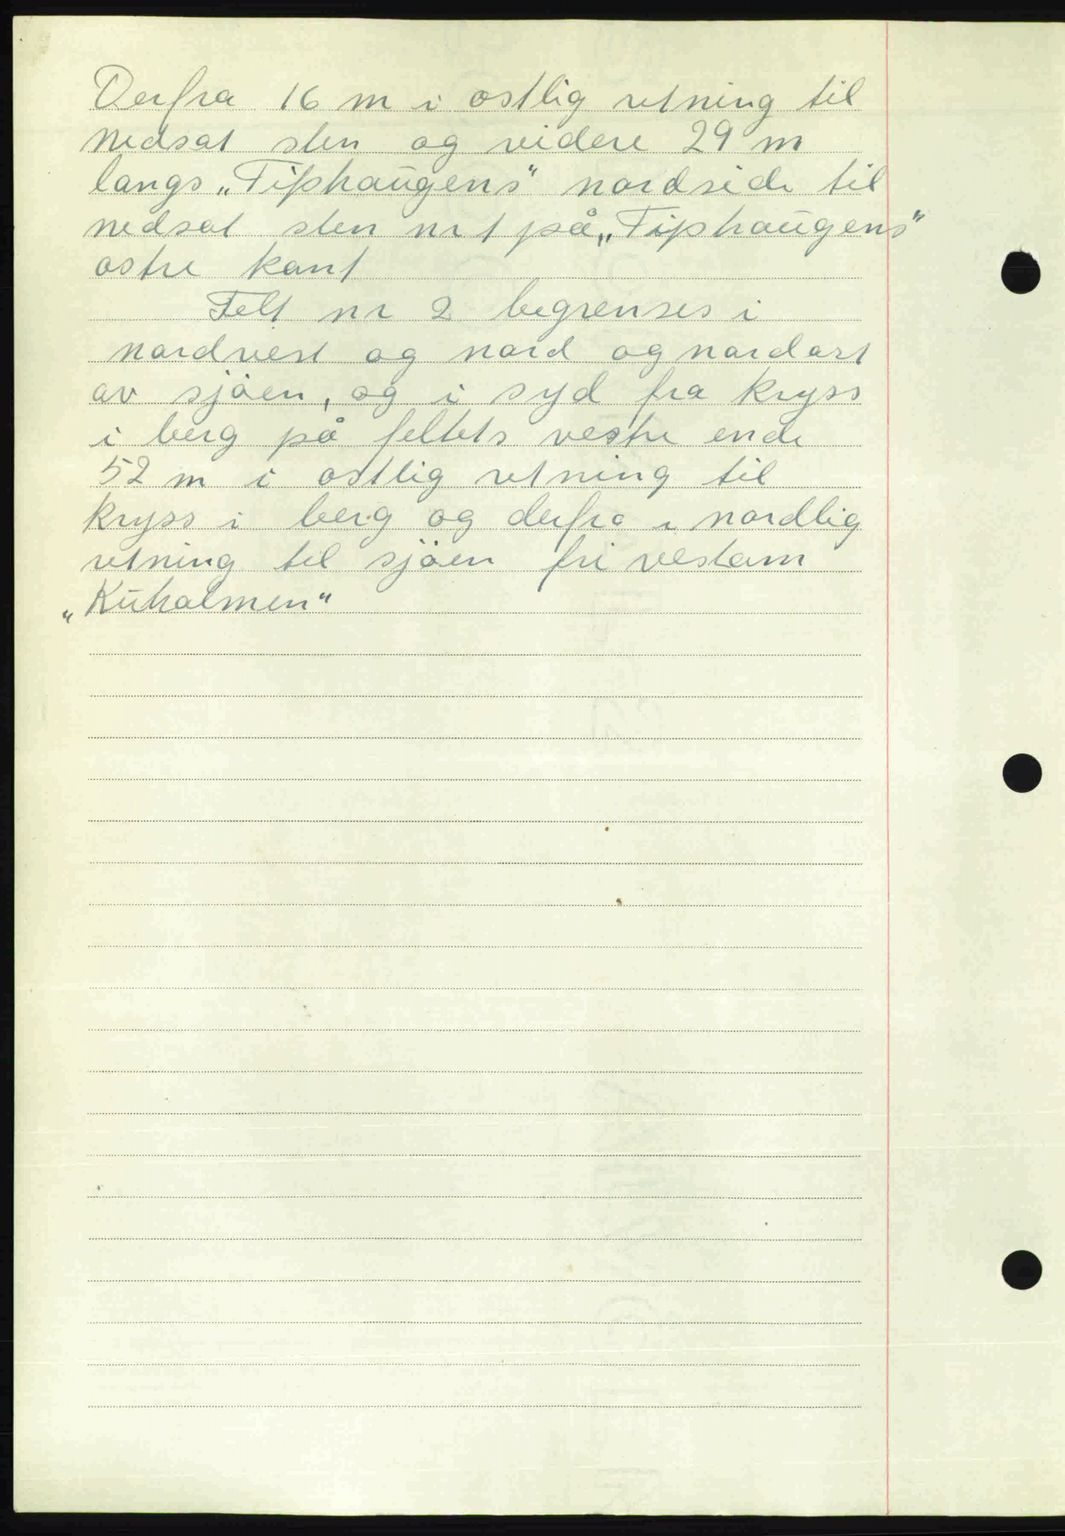 Derfra 16 m i ostlig retning til
nedsat sten og videre 29 m
langs „Fiphaugens" nordside til
nedsat sten nr 1 på „Fiphaugens"
ostre kant
Felt nr 2 begrenses i
nordvest og nord og nordost
av sjöen, og i syd fra kryss
i berg på feltets vestre ende
52 m i ostlig retning til
kryss i berg og derfra i nordlig
retning til sjöen fri vestom
„Kuholmen"